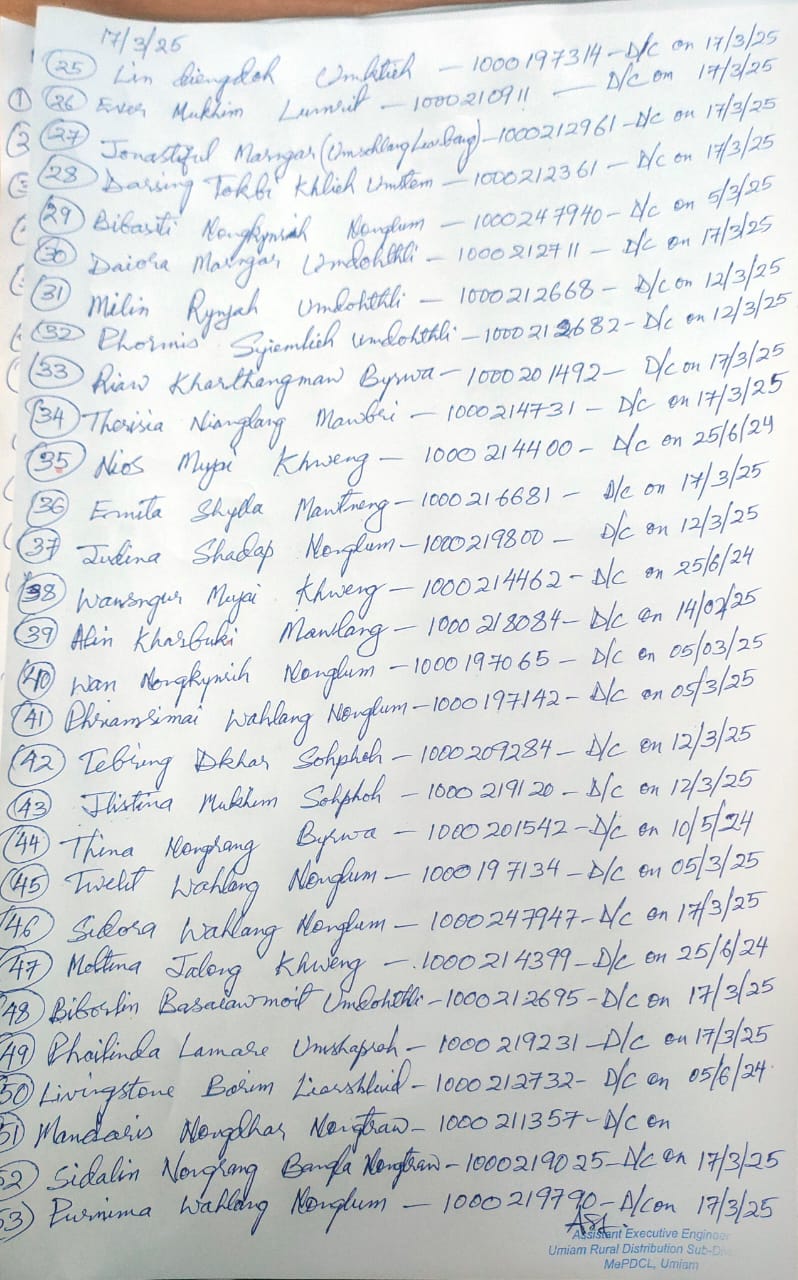 17/3/25
25 Lin Liengdoh Umktieh - 1000197314 - D/c on 17/3/25
26 Ever Mukhim Lumrit - 1000210911 - D/c on 17/3/25
27 Jonastiful Marngar (Umsohlang Liarbang) - 1000212961 - D/c on 17/3/25
28 Darsing Tokbi Khlieh Umstem - 1000212361 - D/c on 17/3/25
29 Bibasti Nongkynrih Nonglum - 1000247940 - D/c on 5/3/25
30 Daiora Marngar Umdohthli - 1000212711 - D/c on 17/3/25
31 Milin Rynjah Umdohthli - 1000212668 - D/c on 12/3/25
32 Phormis Syiemlieh Umdohthli - 1000212682 - D/c on 12/3/25
33 Riaw Kharthangmaw Byrwa - 1000201492 - D/c on 17/3/25
34 Therisia Nianglang Mawbri - 1000214731 - D/c on 17/3/25
35 Nios Mujai Khweng - 1000214400 - D/c on 25/6/24
36 Ermita Shylla Mawtneng - 1000216681 - D/c on 17/3/25
37 Judina Shadap Nonglum - 1000219800 - D/c on 12/3/25
38 Wansngur Mujai Khweng - 1000214462 - D/c on 25/6/24
39 Alin Kharbuki Mawlang - 1000218084 - D/c on 14/02/25
40 Wan Nongkynrih Nonglum - 1000197065 - D/c on 05/03/25
41 Phriamsimai Wahlang Nonglum - 1000197142 - D/c on 05/3/25
42 Tebring Dkhar Sohphoh - 1000209284 - D/c on 12/3/25
43 Jlistina Mukhim Sohphoh - 1000219120 - D/c on 12/3/25
44 Thina Nongrang Byrwa - 1000201542 - D/c on 10/5/24
45 Twelit Wahlang Nonglum - 1000197134 - D/c on 05/3/25
46 Sidora Wahlang Nonglum - 1000247947 - D/c on 17/3/25
47 Meltina Jalong Khweng - 1000214399 - D/c on 25/6/24
48 Biborlin Basaiawmoit Umdohthli - 1000212695 - D/c on 17/3/25
49 Phailinda Lamare Umshaprah - 1000219231 - D/c on 17/3/25
50 Livingstone Borim Liarsluid - 1000212732 - D/c on 05/6/24
51 Mandaris Nongdhar Nongtraw - 1000211357 - D/c on
52 Sidalin Nongrang Bangla Nongtraw - 1000219025 - D/c on 17/3/25
53 Purnima Wahlang Nonglum - 1000219790 - D/c on 17/3/25
Assistant Executive Engineer
Umiam Rural Distribution Sub-Div
MePDCL, Umiam